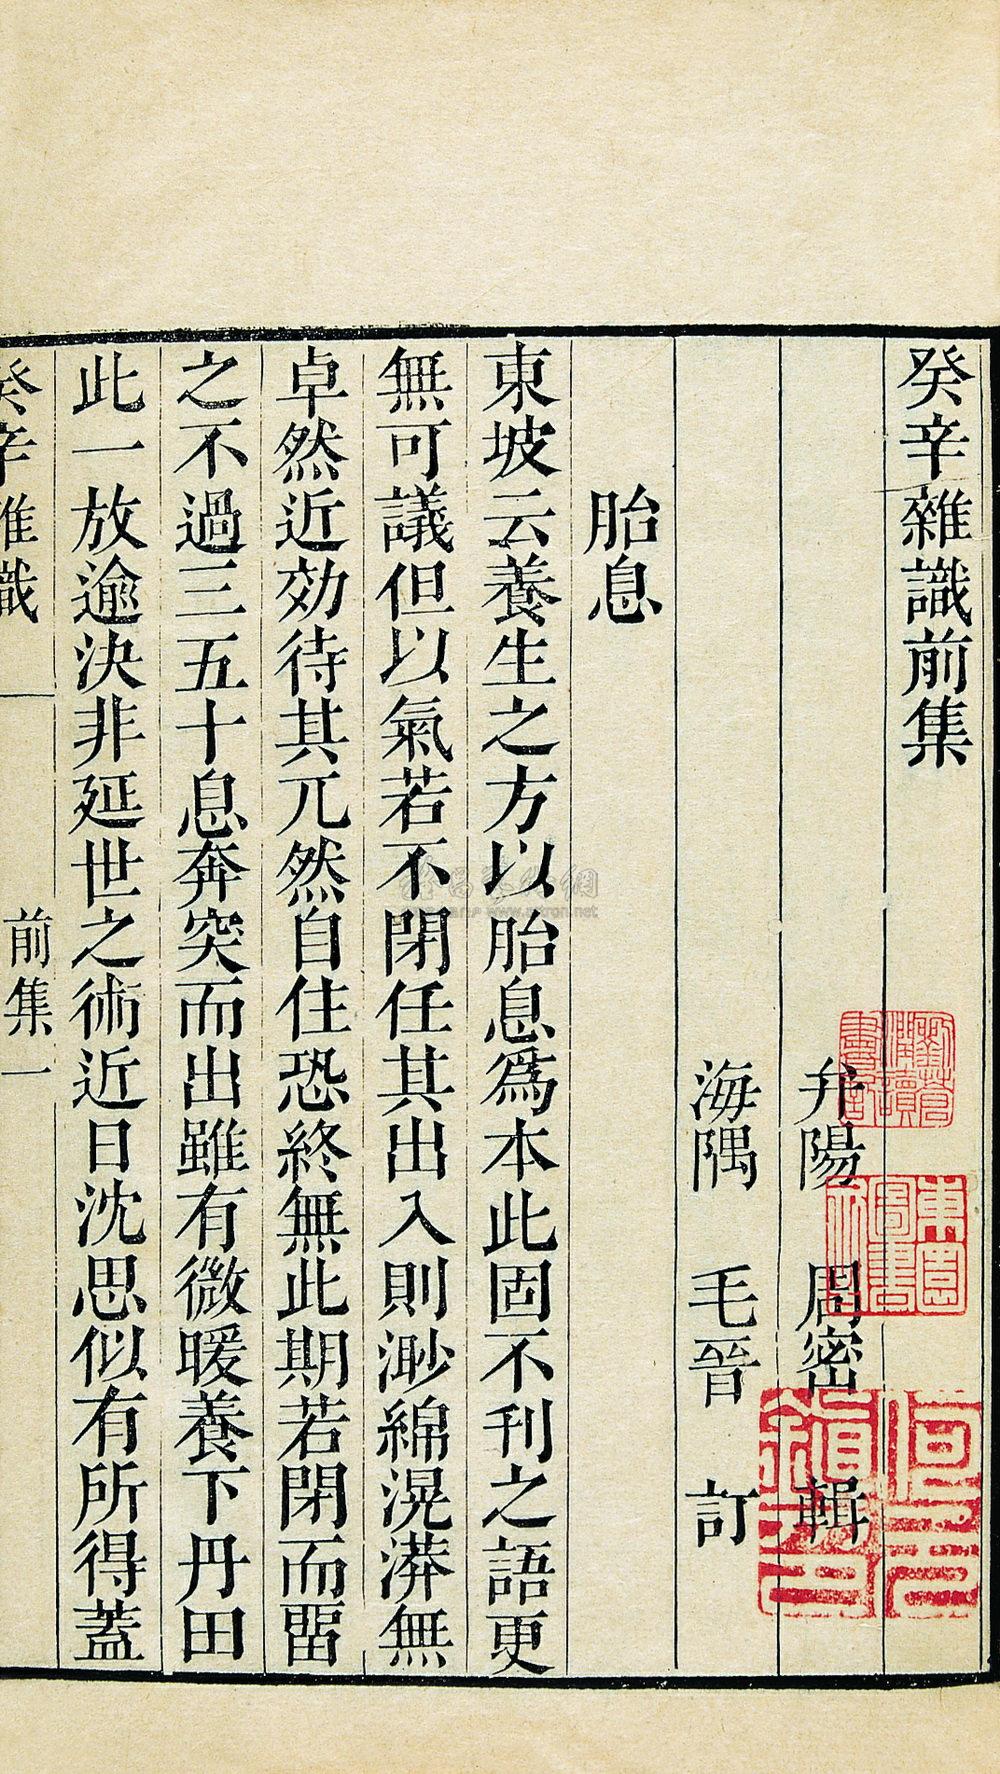 癸辛雜識前集
弁陽　周密　輯
海隅　毛晉　訂
胎息
東坡云養生之方以胎息爲本此固不刊之語更
無可議但以氣若不閉任其出入則渺綿滉漭無
卓然近効待其兀然自住恐終無此期若閉而畱
之不過三五十息奔突而出雖有微暖養下丹田
此一放逾決非延世之術近日沈思似有所得蓋
癸辛雜識　前集　一